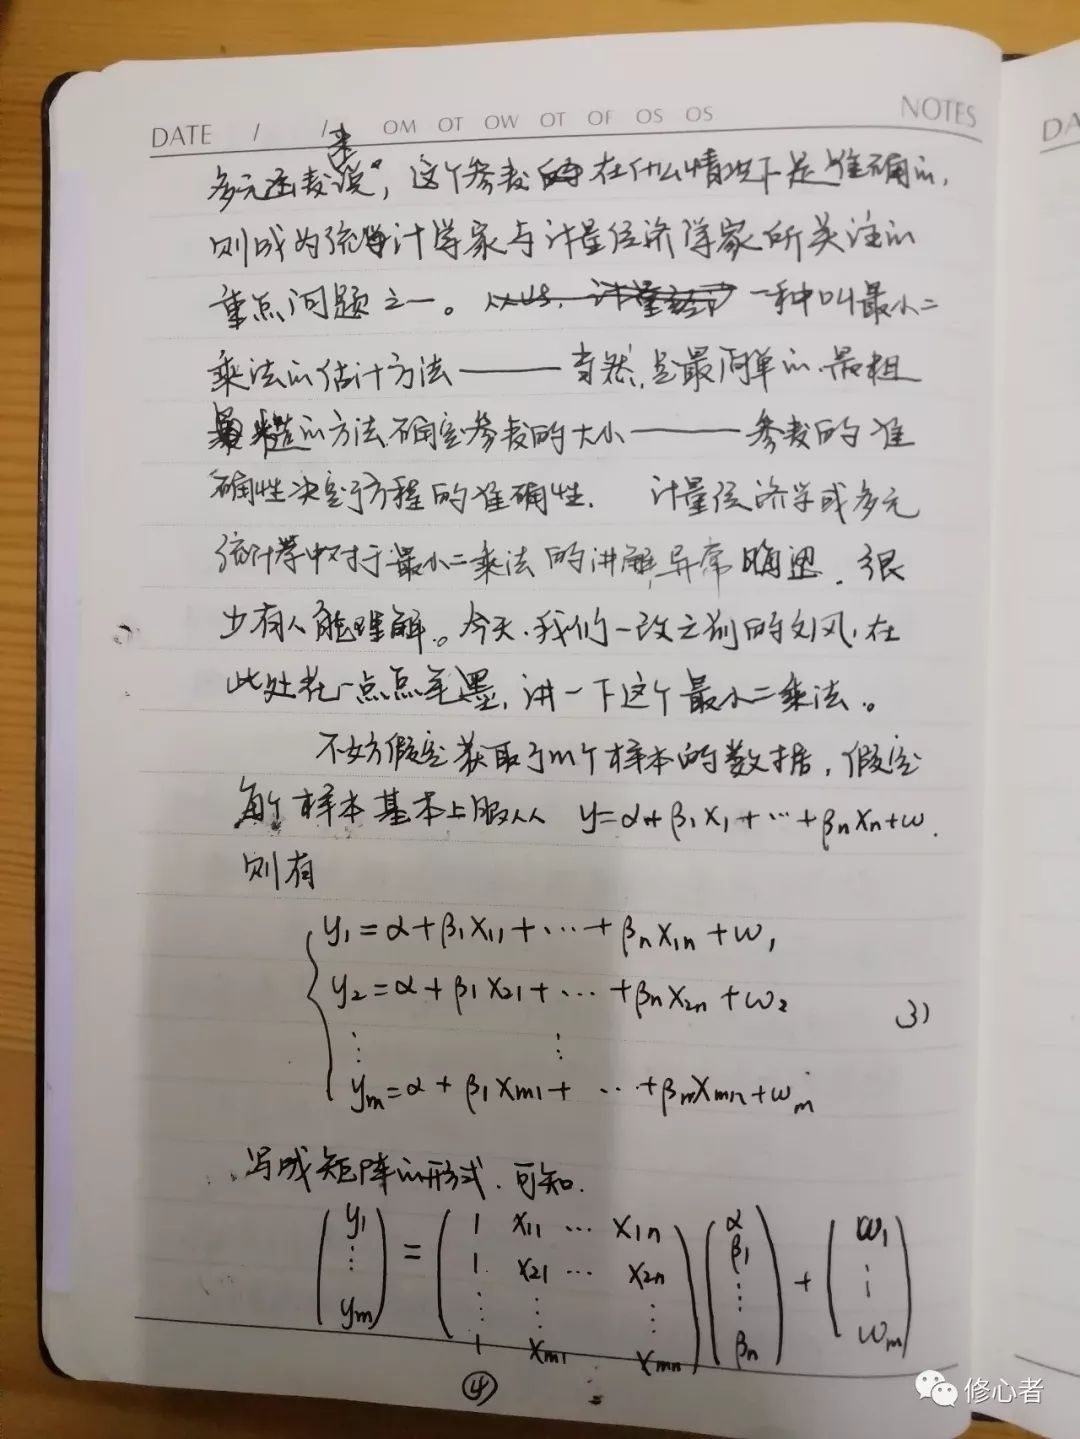 DATE / / OM OT OW OT OF OS OS NOTES
来
多元函数说，这个参数在什么情况下是准确的，
则成为统计学家与计量经济学家所关注的
重点问题之一。一种叫最小二
乘法的估计方法———当然，是最简单的、最粗
糙的方法，确定参数的大小———参数的准
确性决定了方程的准确性. 计量经济学或多元
统计学中对于最小二乘法的讲解异常晦涩，很
少有人能理解。今天，我们一改之前的文风，在
此处花一点点笔墨，讲一下这个最小二乘法。
不妨假定获取了m个样本的数据，假定
每个样本基本上服从 y=α+β₁x₁+…+βₙxₙ+ω.
则有
y₁=α+β₁x₁₁+…+βₙx₁ₙ+ω₁
y₂=α+β₁x₂₁+…+βₙx₂ₙ+ω₂ 3)
⋮ ⋮
yₘ=α+β₁xₘ₁+…+βₘxₘₙ+ωₘ
写成矩阵的形式，可知.
(y₁ ⋮ yₘ) = (1 x₁₁ … x₁ₙ
1 x₂₁ … x₂ₙ
⋮ ⋮ ⋮
1 xₘ₁ xₘₙ) (α β₁ ⋮ βₙ) + (ω₁ ⋮ ωₘ)
④
修心者